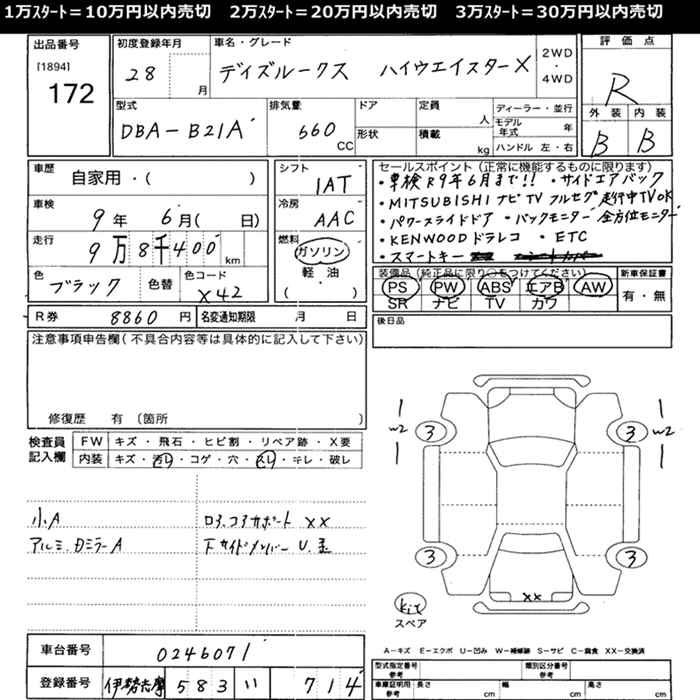 1万ｽﾀｰﾄ＝10万円以内売切　2万ｽﾀｰﾄ＝20万円以内売切　3万ｽﾀｰﾄ＝30万円以内売切
出品番号
[1894]
172
初度登録年月
28 月
車名・グレード
デイズルークス ハイウエイスターX
2WD
・
4WD
評価点
R
外装 内装
B B
型式
DBA-B21A
排気量
660 CC
ドア
形状
定員 人
積載 kg
ディーラー・並行
モデル年式 年
ハンドル 左・右
車歴
自家用・( )
車検
9年 6月( 日)
走行
9万8千400 km
色
ブラック
色替
色コード
X42
シフト
IAT
冷房
AAC
燃料
ガソリン
軽・油
( )
セールスポイント(正常に機能するものに限ります)
・車検R9年6月まで!! ・サイドエアバック
・MITSUBISHI ナビ TV フルセグ 走行中TVOK
・パワースライドドア ・バックモニター 全方位モニター
・KENWOODドラレコ ・ETC
・スマートキー
装備品(純正品に限り○をつけてください)
PS PW ABS エアB AW
SR ナビ TV カワ
新車保証書
有・無
後日品
R券 8860 円
名変通知期限 月 日
注意事項申告欄(不具合内容等は具体的に記入して下さい)
修復歴 有 〔箇所 〕
検査員記入欄
FW キズ・飛石・ヒビ割・リペア跡・X要
内装 キズ・汚レ・コゲ・穴・スレ・キレ・破レ
小A
アルミ、Dミラー A
ロア、コアサポート XX
下サイドメンバー U、歪
3 3
W2 W2
3 3
XX
kit
スペア
A－キズ E－エクボ U－凹み W－補修跡 S－サビ C－腐食 XX－交換済
車台番号 0246071
登録番号 伊勢志摩 583 い 714
型式指定番号 参考
類別区分番号 参考
車庫証明用 参考
長さ cm
幅 cm
高さ cm